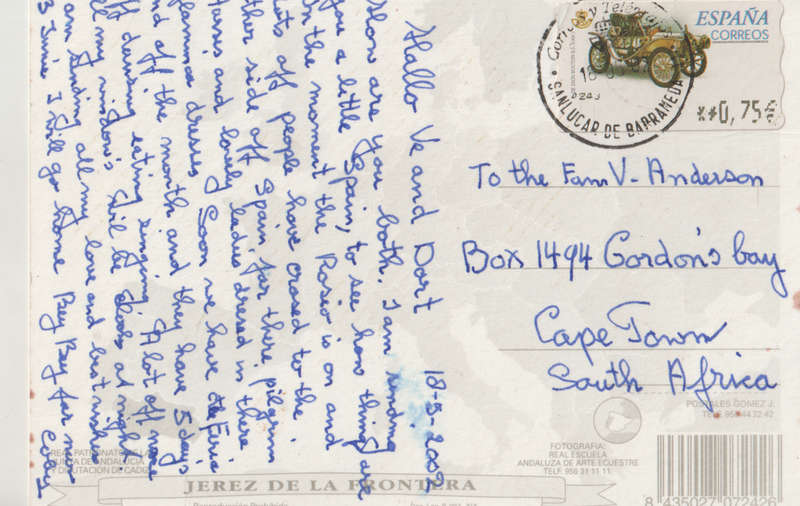 Hallo Ve and Dort 18-5.2002
How are you both. I am sending
you a little Spain, to see how things are
In the moment the Rosio is on and
lots off people have crosed to the
other side off Spain for there pilgrim
Horris and lovely ladies dressed in there
flamenco dresses Soon we have the Ferie
end off the month and they have 5 day's
off dancing eating singing. A lot off noise
all my window's wil be closed at night.
I am sending all my love and best wishes
3 June I will go home Bey Bey for now
Correos y Telégrafos
18
SANLUCAR DE BARRAMEDA
ESPAÑA
CORREOS
**0,75€
To the Fam V. Anderson
Box 1494 Gordon's bay
Cape Town
South Africa
POSTALES GOMEZ J.
TELF. 956 44 72 42
REAL PATRONATO DE LA
JUNTA DE ANDALUCIA
Y DIPUTACION DE CADIZ
FOTOGRAFIA:
REAL ESCUELA
ANDALUZA DE ARTE ECUESTRE
TELF. 956 31 11 11
JEREZ DE LA FRONTERA
8 435027 072426